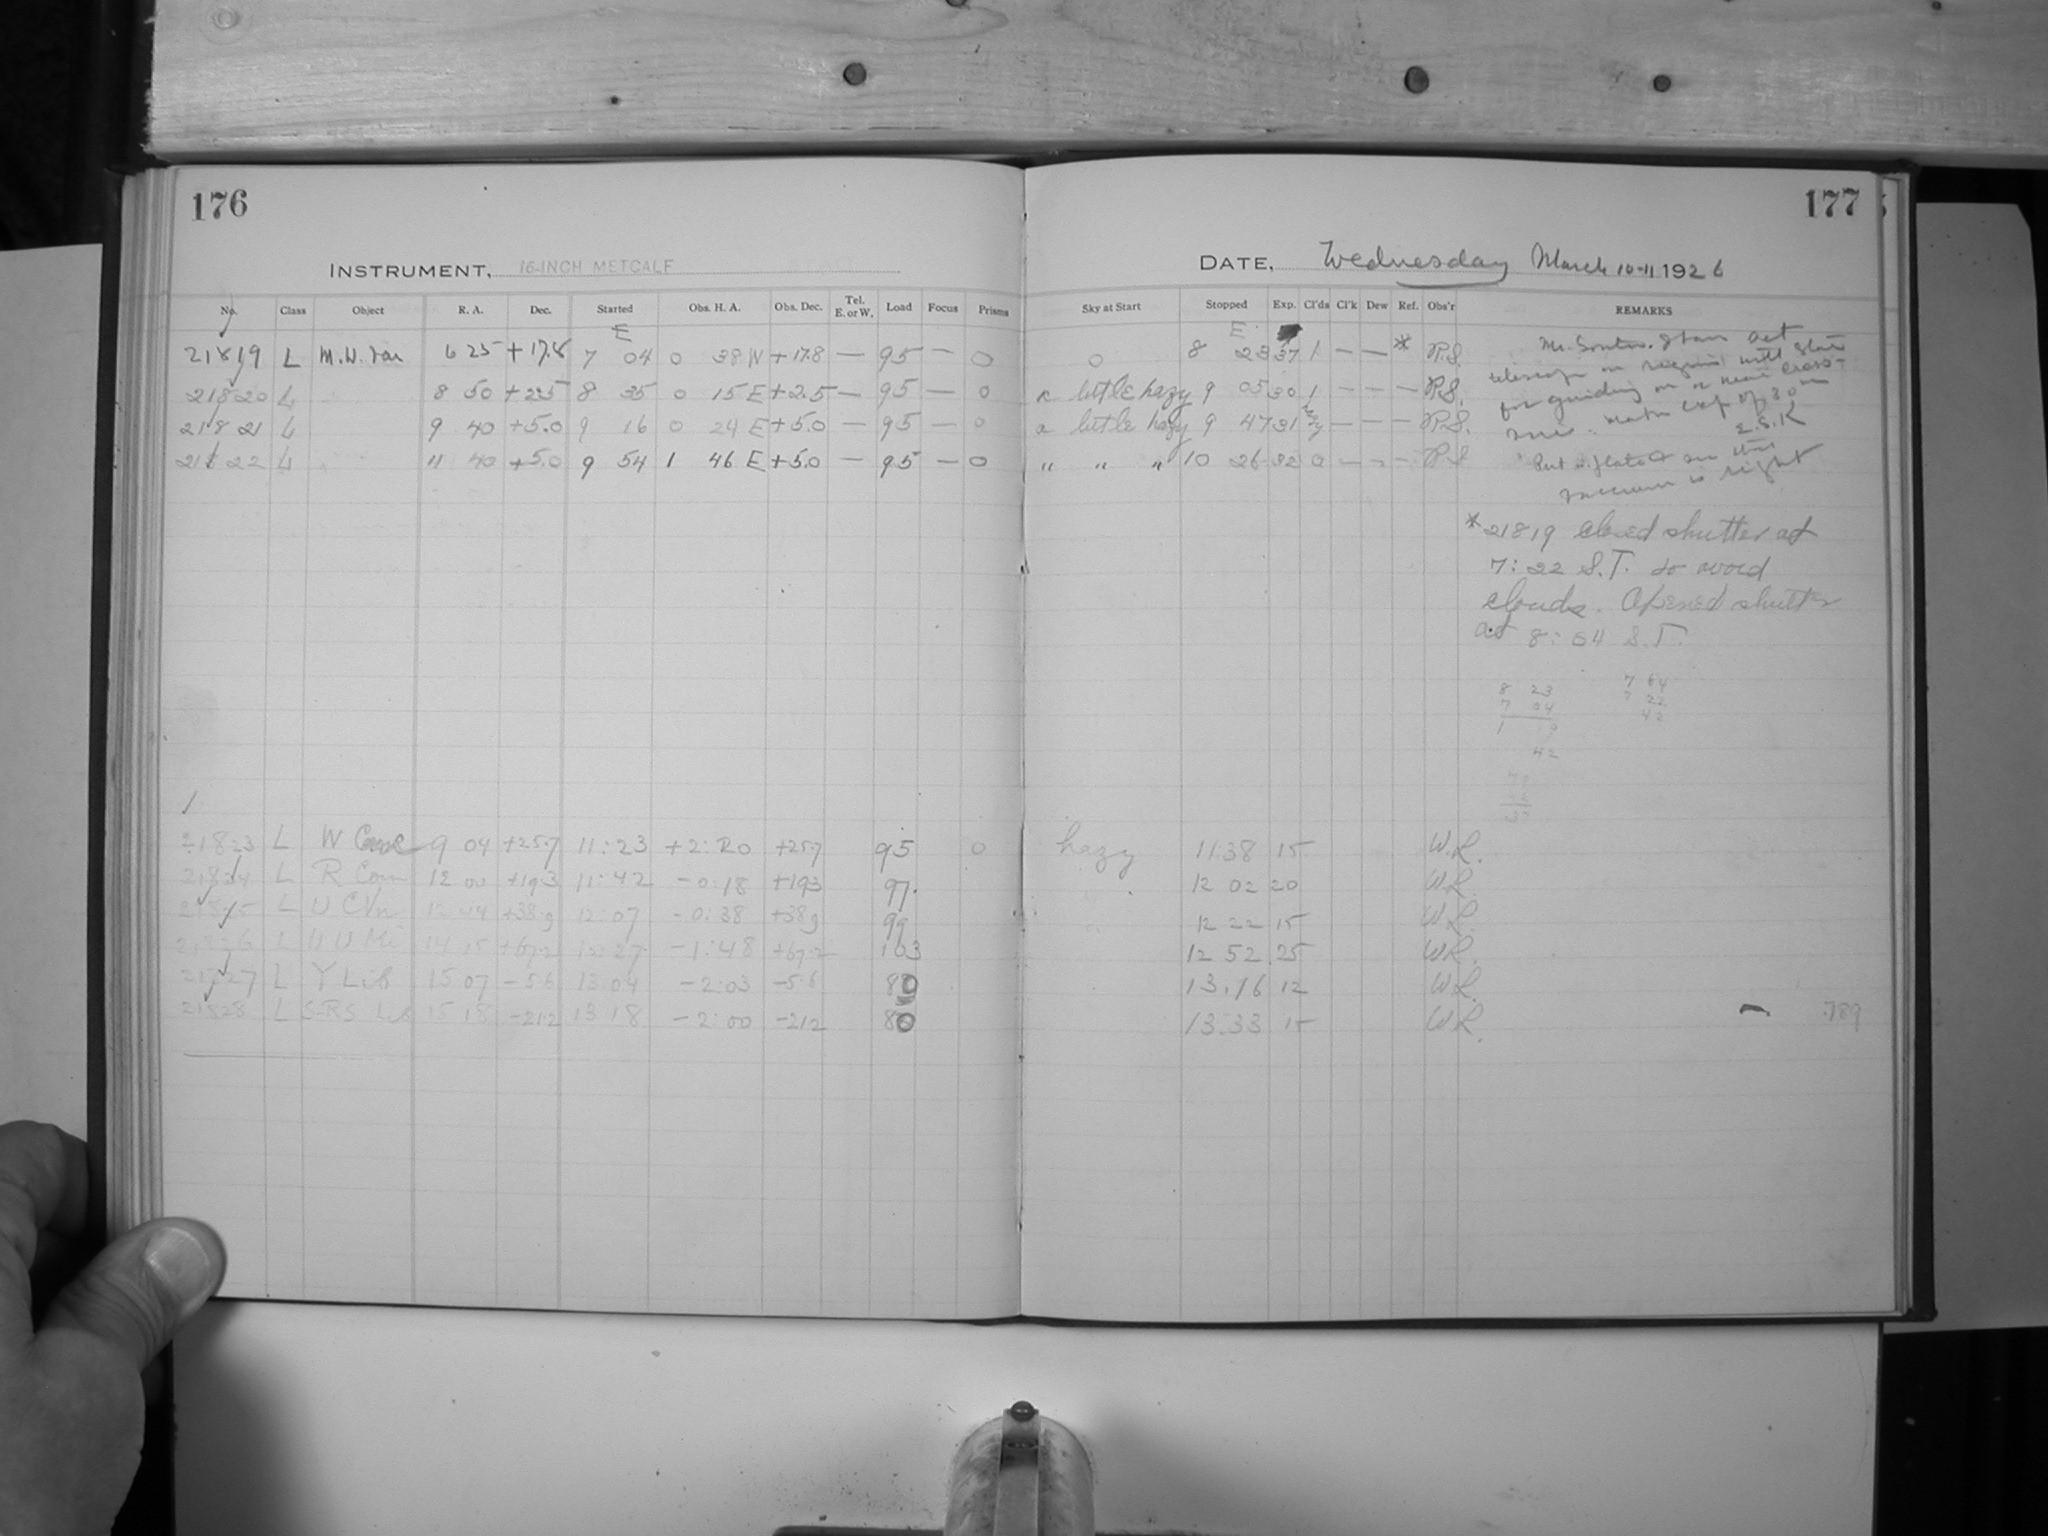 176
177
INSTRUMENT, 16-INCH METCALF
DATE, Wednesday March 10-11 1926
No. Class Object R. A. Dec. Started Obs. H. A. Obs. Dec. Tel. E. or W. Load Focus Prisms Sky at Start Stopped Exp. Cl'ds Cl'k Dew Ref. Obs'r REMARKS
E E
21819 L M.W. Var 6 25 +17.8 7 04 0 38 W +17.8 — 95 — 0 0 8 23 37 1 — — * R.S.
21820 L 8 50 +2.5 8 35 0 15 E +2.5 — 95 — 0 a little hazy 9 05 30 1 — — — R.S.
21821 L 9 40 +5.0 9 16 0 24 E +5.0 — 95 — 0 a little hazy 9 47 31 hzy — — — R.S.
21822 L 11 40 +5.0 9 54 1 46 E +5.0 — 95 — 0 " " " 10 26 32 0 — — — R.S
set
telescope on required
for guiding on a near cross-
exp of 30 m
L.S.K
Put in plate & see that
vacuum is right
*21819 closed shutter at
7:22 S.T. to avoid
clouds. Opened shutter
at 8:04 S.T.
8 23 7 64
7 04 7 22
1 9 42
42
21823 L W Canc 9 04 +25.7 11:23 +2:20 +25.7 95 0 hazy 11:38 15 W.R.
21824 L R Com 12 00 +19.3 11:42 -0:18 +19.3 97 12 02 20 WR.
21825 L U CVn 12 44 +38.9 12:07 -0:38 +38.9 99 12 22 15 WR.
21826 L U UMi 14 15 +67.2 12:27 -1:48 +67.2 103 12 52 25 WR.
21827 L Y Lib 15 07 -5.6 13 04 -2:03 -5.6 80 13.16 12 WR.
21828 L S-RS Lib 15 18 -21.2 13 18 -2:00 -21.2 80 13:33 15 WR. 789